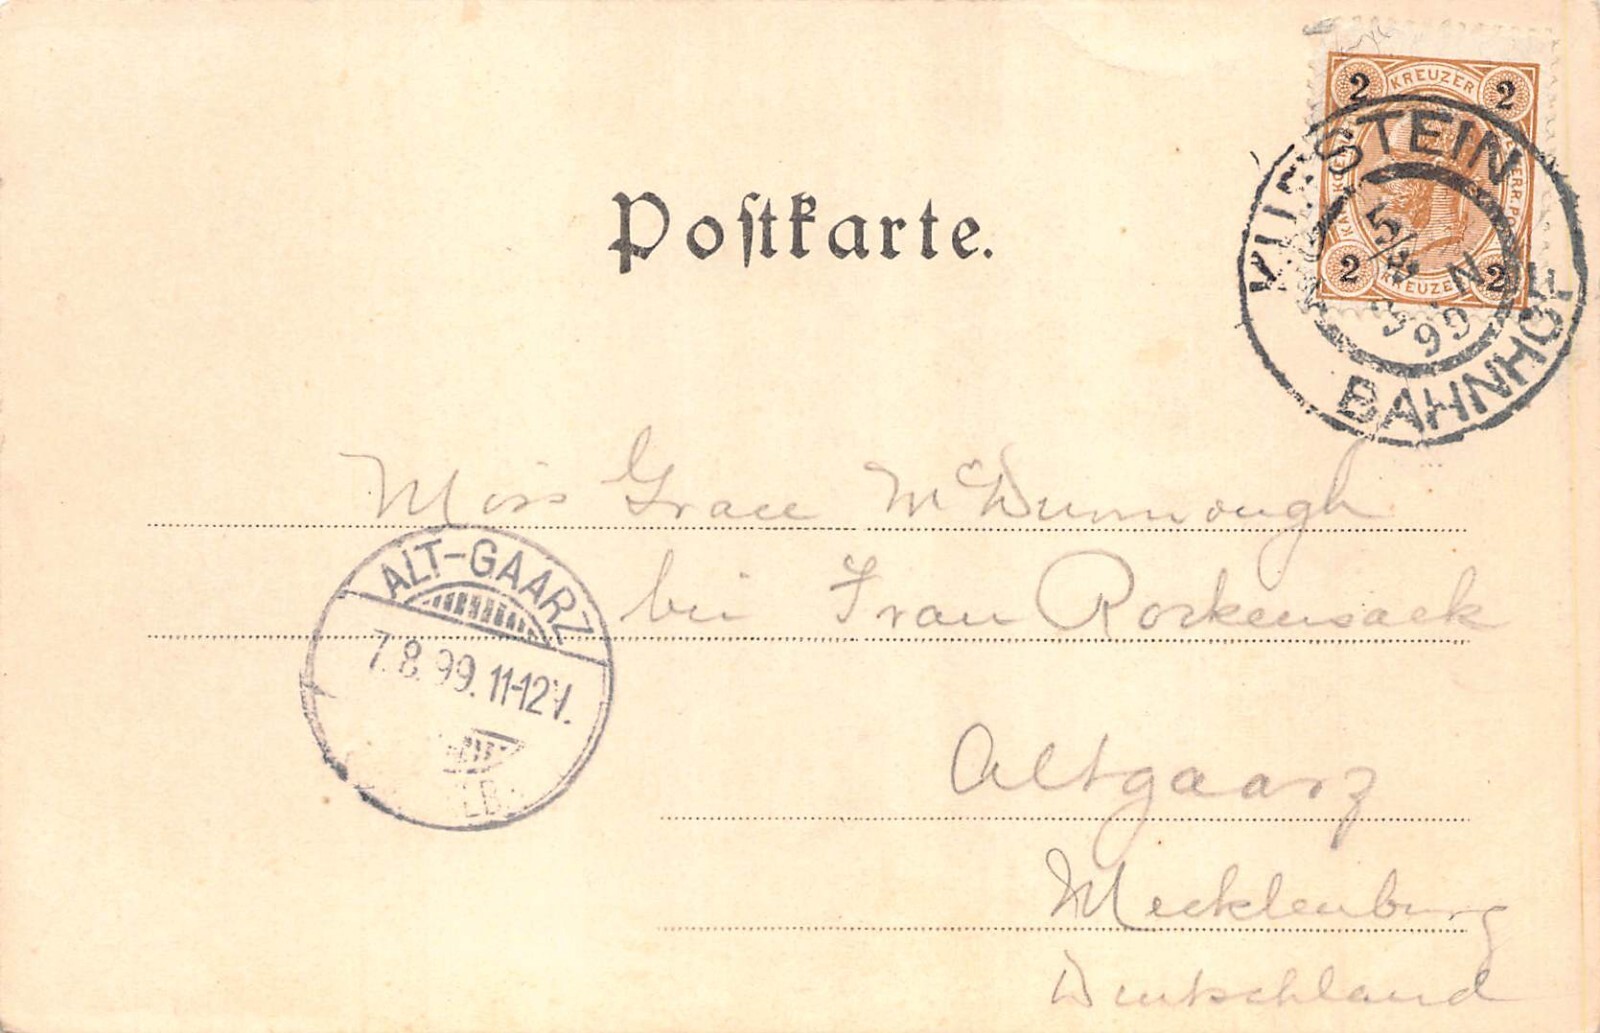 2 KREUZER 2
KUFSTEIN
5/8
99 N
2 KREUZER 2
BAHNHOF
Poſtkarte.
Miss Grace McDunnough
bei Frau Rockensack
ALT-GAARZ
7.8.99. 11-12V.
Altgaarz
Mecklenburg
Deutschland